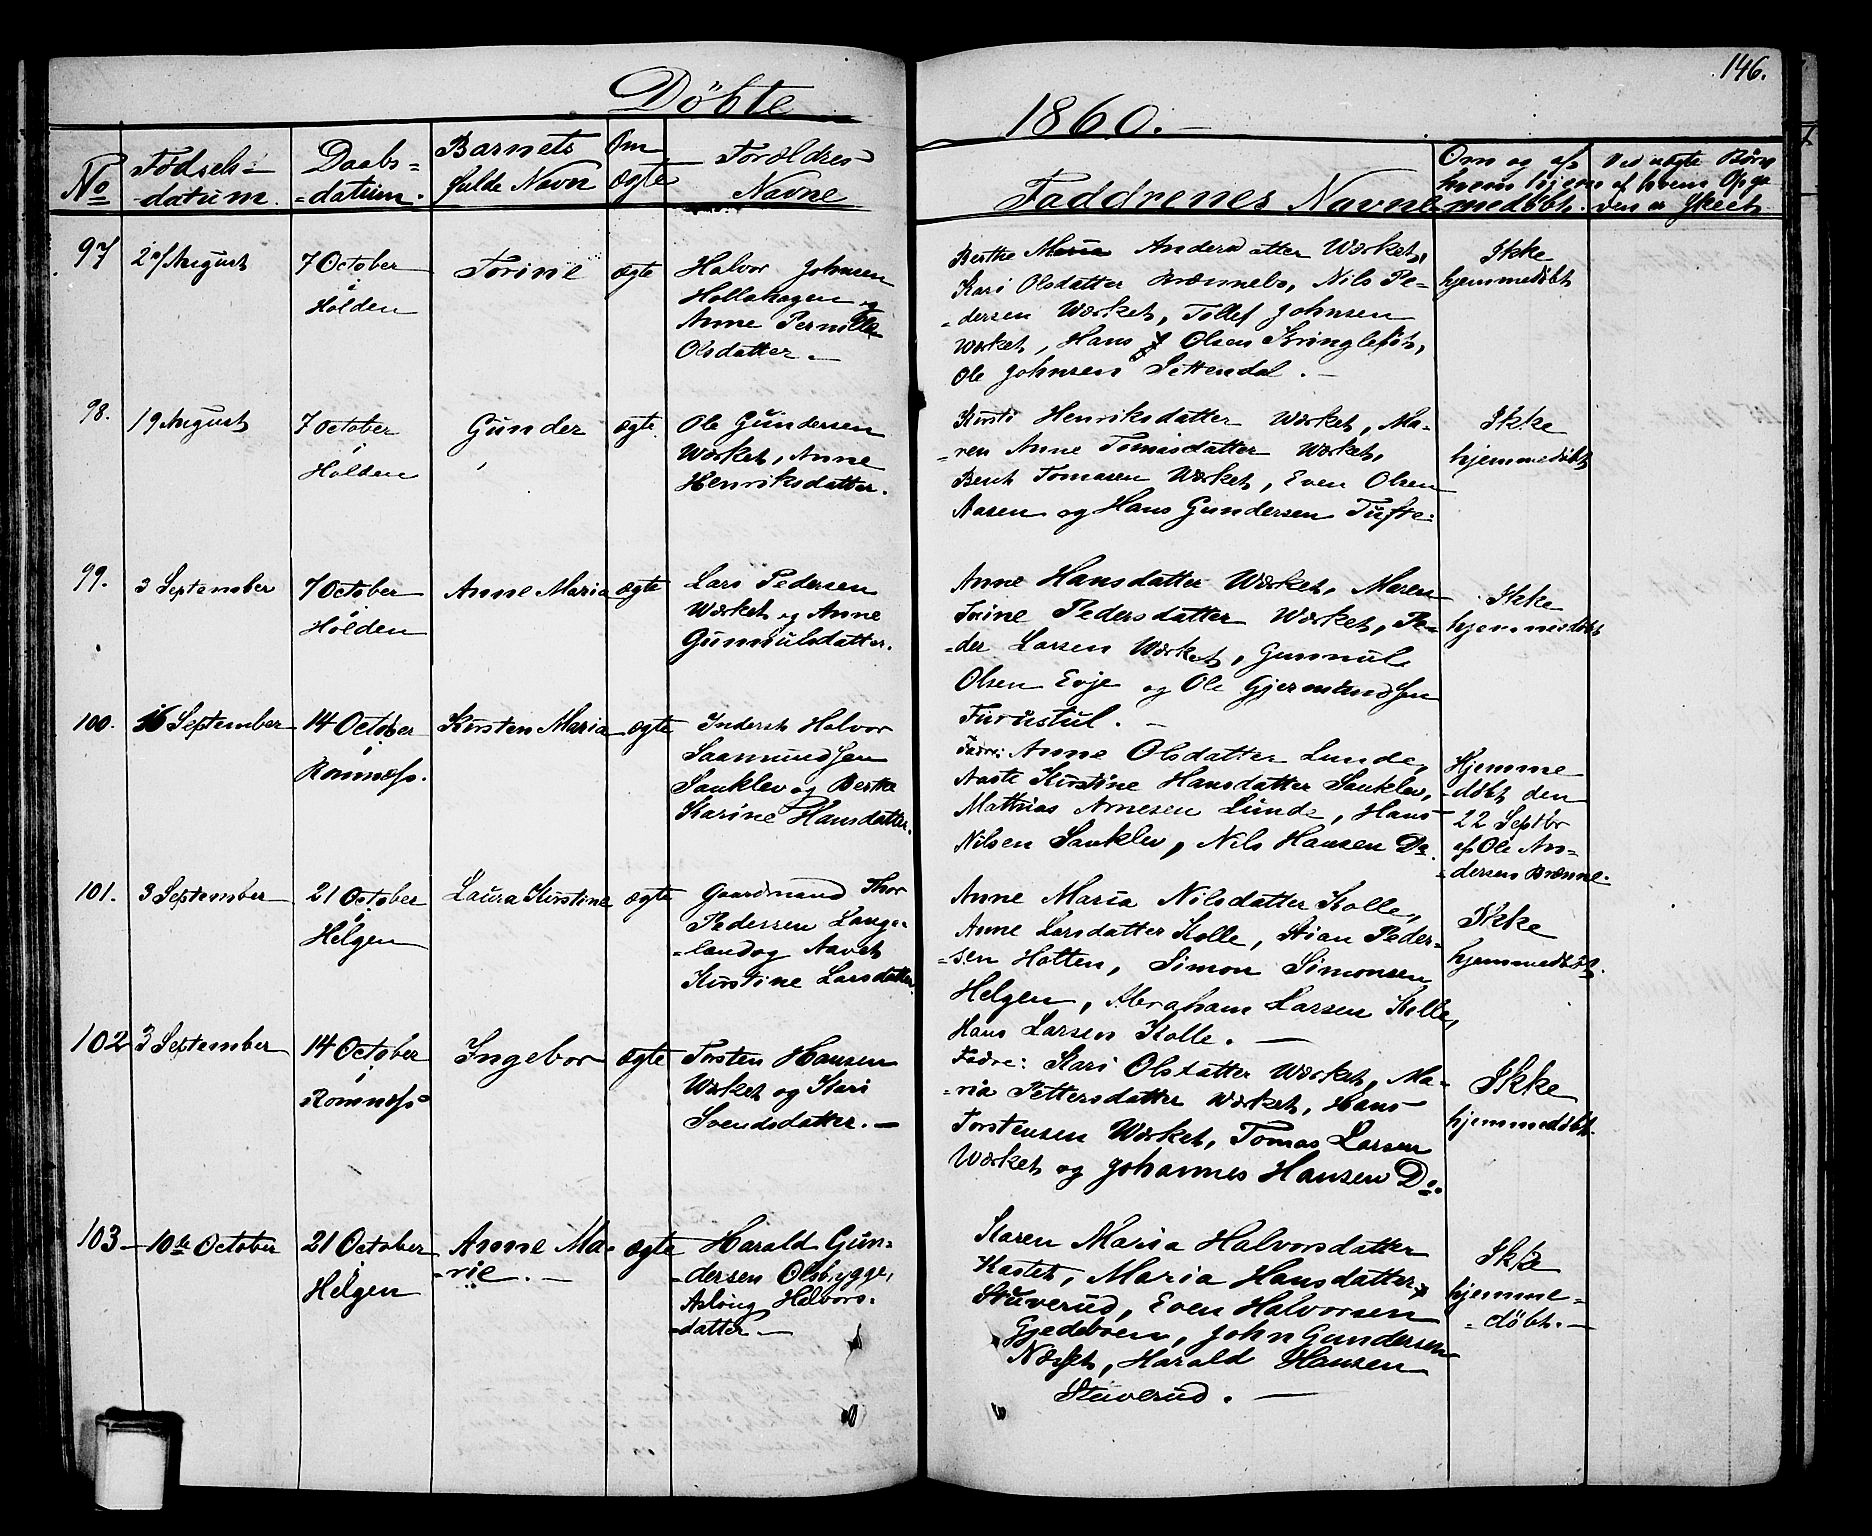 146.
Döbte
1860.-
No
Fødsels-
datum.
Daabs-
datum.
Barnets
fulde Navn
Om
ægte
Forældres
Navne
Faddrenes Navne
Om og af
hvem hjem
medøbt.
Ved uægte Børn
af hvem Opgi
ven er Skeet.
97
2/August
7 October
i
Holden
Torine
ægte
Halvor Johnsen
Hollahagen og
Anne Pernille
Olsdatter.-
Berthe Maria Andersdatter Værket,
Kari Olsdatter Brænnebo, Nils Pe-
-dersen Værket, Tollef Johnsen
Værket, Hans Olsen Kringlefot,
Ole Johnsen Settendal.-
Ikke
hjemmedøbt
98.
19 August
7 October
i
Holden
Gunder
ægte.
Ole Gundersen
Værket, Anne
Henriksdatter.
Kirsti Henriksdatter Værket, Ma-
-ren Anne Tomasdatter Værket,
Bent Tomasen Værket, Even Olsen
Aasen og Hans Gundersen Tufte.
Ikke
hjemmedøbt
99.
3 September
7 October
i
Holden
Anne Maria
ægte
Lars Pedersen
Værket og Anne
Gunnulsdatter.
Anne Hansdatter Værket, Maren
Torine Pedersdatter Værket, Pe-
-der Larsen Værket, Gunnul
Olsen Evje og Ole Gjermundsen
Furustul.-
Ikke
hjemmedøbt
100.
16 September
14 October
i
Romnæss.
Kirsten Maria
ægte
Inderst Halvor
Saamundsen
Sanklev og Berthe
Karine Hansdatter.
Fadre: Anne Olsdatter Lunde,
Aaste Kirstine Hansdatter Sanklev,
Mathias Arnesen Lunde, Hans
Nilsen Sanklev, Nils Hansen Do.
Hjemme
-døbt den
22 Septbr
af Ole An-
-dersen Brænne.
101.
3 September
21 October
i
Helgen
Laura Kirstine
ægte
Gaardmand Thor
Pedersen Lange-
-land og Aavet
Kirstine Larsdatter.
Anne Maria Nilsdatter Kolle,
Anne Larsdatter Kolle, Stian Peder-
-sen Holten, Simon Simonsen
Helgen, Abraham Larsen Kolle,
Hans Larsen Kolle.-
Ikke
hjemmedøbt.
102
3 September
14 October
i
Romnæss
Ingebor
ægte
Torsten Hansen
Værket og Kari
Svendsdatter.-
Fadre: Kari Olsdatter Værket, Ma-
-ria Pettersdatter Værket, Hans
Torstensen Værket, Tomas Larsen
Værket og Johannes Hansen Do.
Ikke
hjemmedøbt.
103
10de October
21 October
i
Helgen
Anne Ma-
-rie.-
ægte
Harald Gun-
-dersen Olsbrygge,
Aslaug Halvors-
-datter-
Karen Maria Halvorsdatter
Kastet, Maria Hansdatter
Stuverud, Even Halvorsen
Gjedeboen, John Gundersen
Næset, Harald Hansen
Stuverud.-
Ikke
hjemme-
-døbt.-